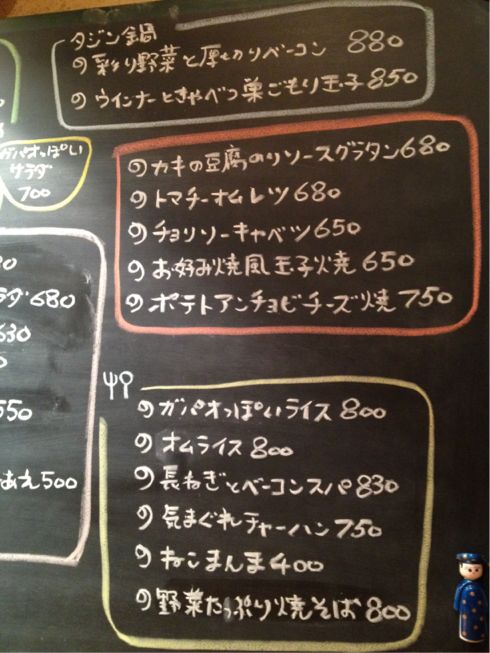 タジン鍋
の彩り野菜と厚切りベーコン 880
のウインナーときゃべつ巣ごもり玉子 850
ガパオっぽい
サラダ
700
のカキの豆腐のリソースグラタン 680
のトマチーオムレツ 680
のチョリソーキャベツ 650
のお好み焼風玉子焼 650
のポテトアンチョビチーズ焼 750
ラダ 680
630
550
あえ 500
のガパオっぽいライス 800
のオムライス 800
の長ねぎとベーコンスパ 830
の気まぐれチャーハン 750
のねこまんま 400
の野菜たっぷり焼そば 800